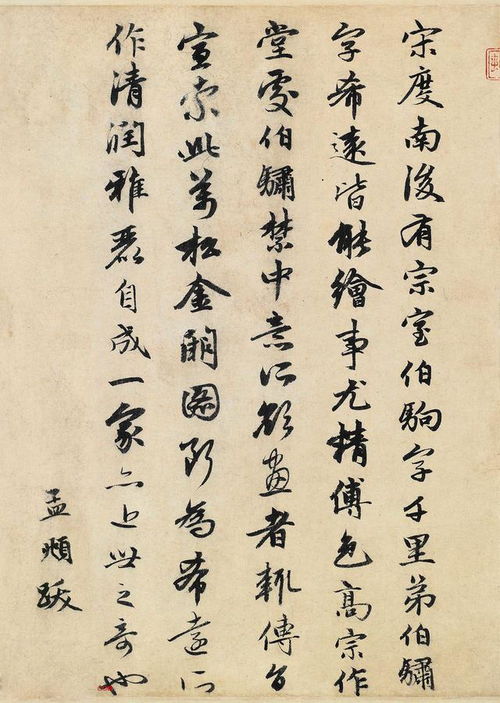 宋度南後有宗室伯駒字千里弟伯驌
字希遠皆能繪事尤精傅色高宗作
堂處伯驌禁中意所欲畫者輒傳旨
宣索此萬松金闕圖斷為希遠所
作清潤雅麗自成一家亦近世之奇也
孟頫跋